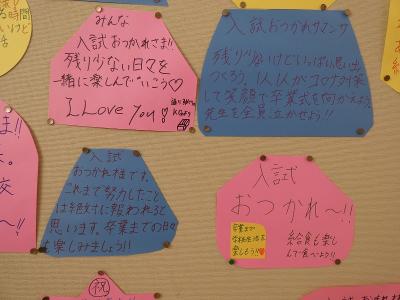 みんな
入試おつかれさま!!
残り少ない日々を
一緒に楽しんでいこう♡
I Love you!
入試おつかれサマンサ
残り少ないけどいっぱい思い出
つくろう。1人1人がコロナ対策
して笑顔で卒業式を向かえよう
先生を全員泣かせよう!!
入試
おつかれ様です。
これまで努力したこと
は絶対に報われると
思います。卒業までの日々
を楽しみましょう!!
入試
おつかれ〜!!
卒業まで
学校生活を
楽しもう!!
給食も楽し
んで食べよう!!
祝